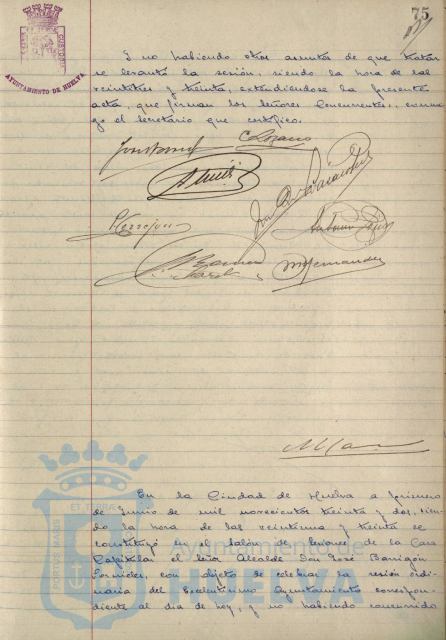 75
AYUNTAMIENTO DE HUELVA
Y no habiendo otros asuntos de que tratar
se levantó la sesión, siendo la hora de las
veintitres y treinta, extendiéndose la presente
acta, que firman los señores concurrentes, conmi-
go el Secretario que certifico.
C Lozano
En la Ciudad de Huelva a primero
de Junio de mil novecientos treinta y dos, sien-
do la hora de las veintiuna y treinta se
constituyó en el salón de sesiones de la Casa
Capitular el Señor Alcalde Don José Barrigón
Fornieles, con objeto de celebrar la sesión ordi-
naria del Excelentísimo Ayuntamiento correspon-
diente al dia de hoy, y no habiendo concurrido
PORTUS MARIS ET TERRAE
Ayuntamiento de
HUELVA